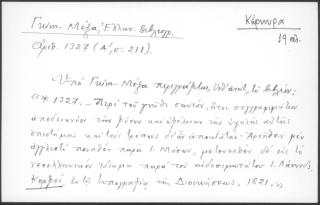 Γκίνη-Μέξα, Ελλην. Βιβλιογρ.
Κέρκυρα
Ἀριθ. 1327 (Α', σ. 211).
19 αἰ.
Ὑπὸ Γκίνη-Μέξα περιγράφεται, τὸ βιβλίον:
«* 1327. – Περὶ τοῦ γνῶθι σαυτόν, ἤτοι σύγγραμμα
ἀποδεικνύον τὴν φύσιν καὶ ὠφέλειαν τῆς ὑψηλῆς αὐτῆς
ἐπιστήμης καὶ τοὺς τρόπους δι' ὧν ἀποκτᾶται. Ἀρχῆθεν μὲν
ἀγγλιστὶ ποιηθὲν παρὰ Ι. Μάσων, μεταφρασθὲν δὲ εἰς τὸ
νεοελληνικὸν ἰδίωμα παρὰ τοῦ αἰδεσιμωτάτου Ι. Λάουνδς.
Κορφοί. Ἐν τῇ Τυπογραφίᾳ τῆς Διοικήσεως. 1821.»